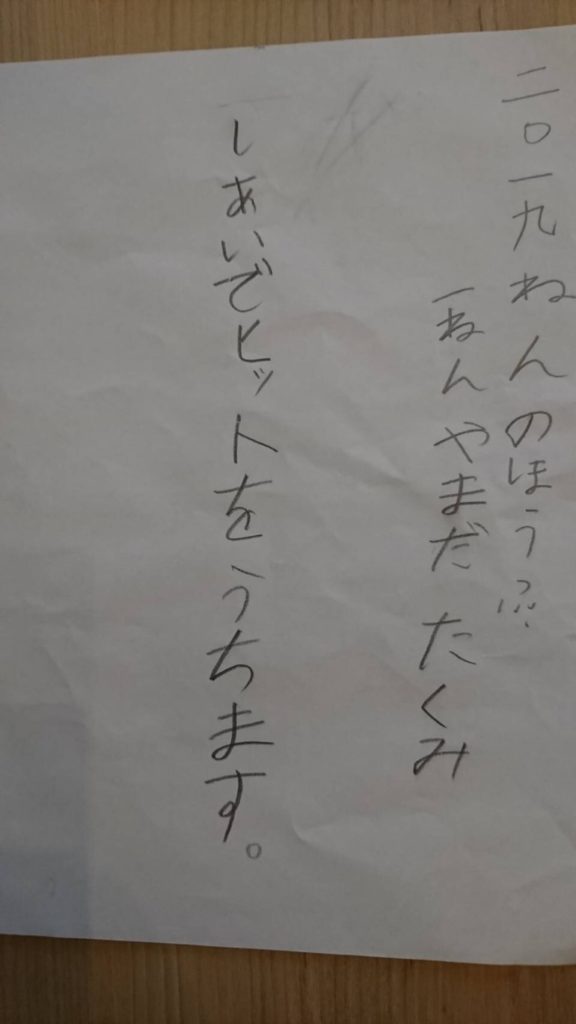 二〇一九ねんのほうふ
一ねんやまだたくみ
しあいでヒットをうちます。